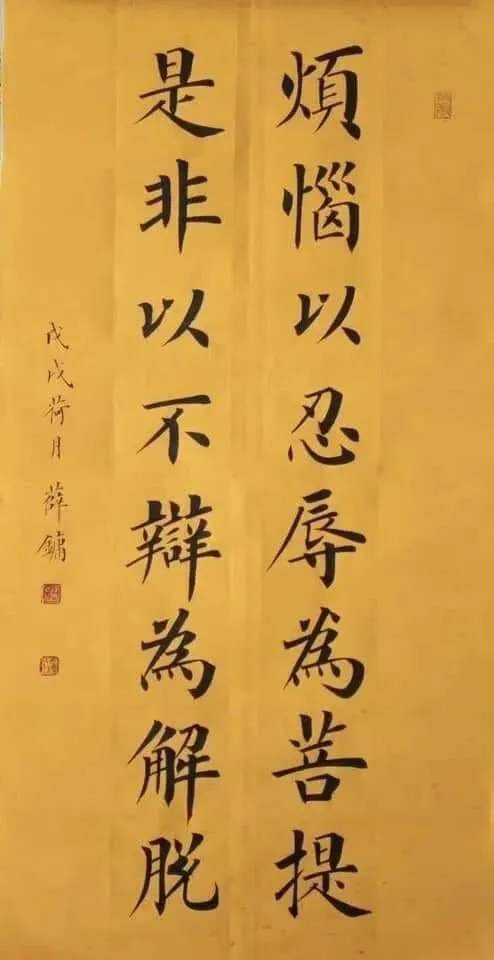 煩惱以忍辱為菩提
是非以不辯為解脫
戊戌荷月 薛鏞